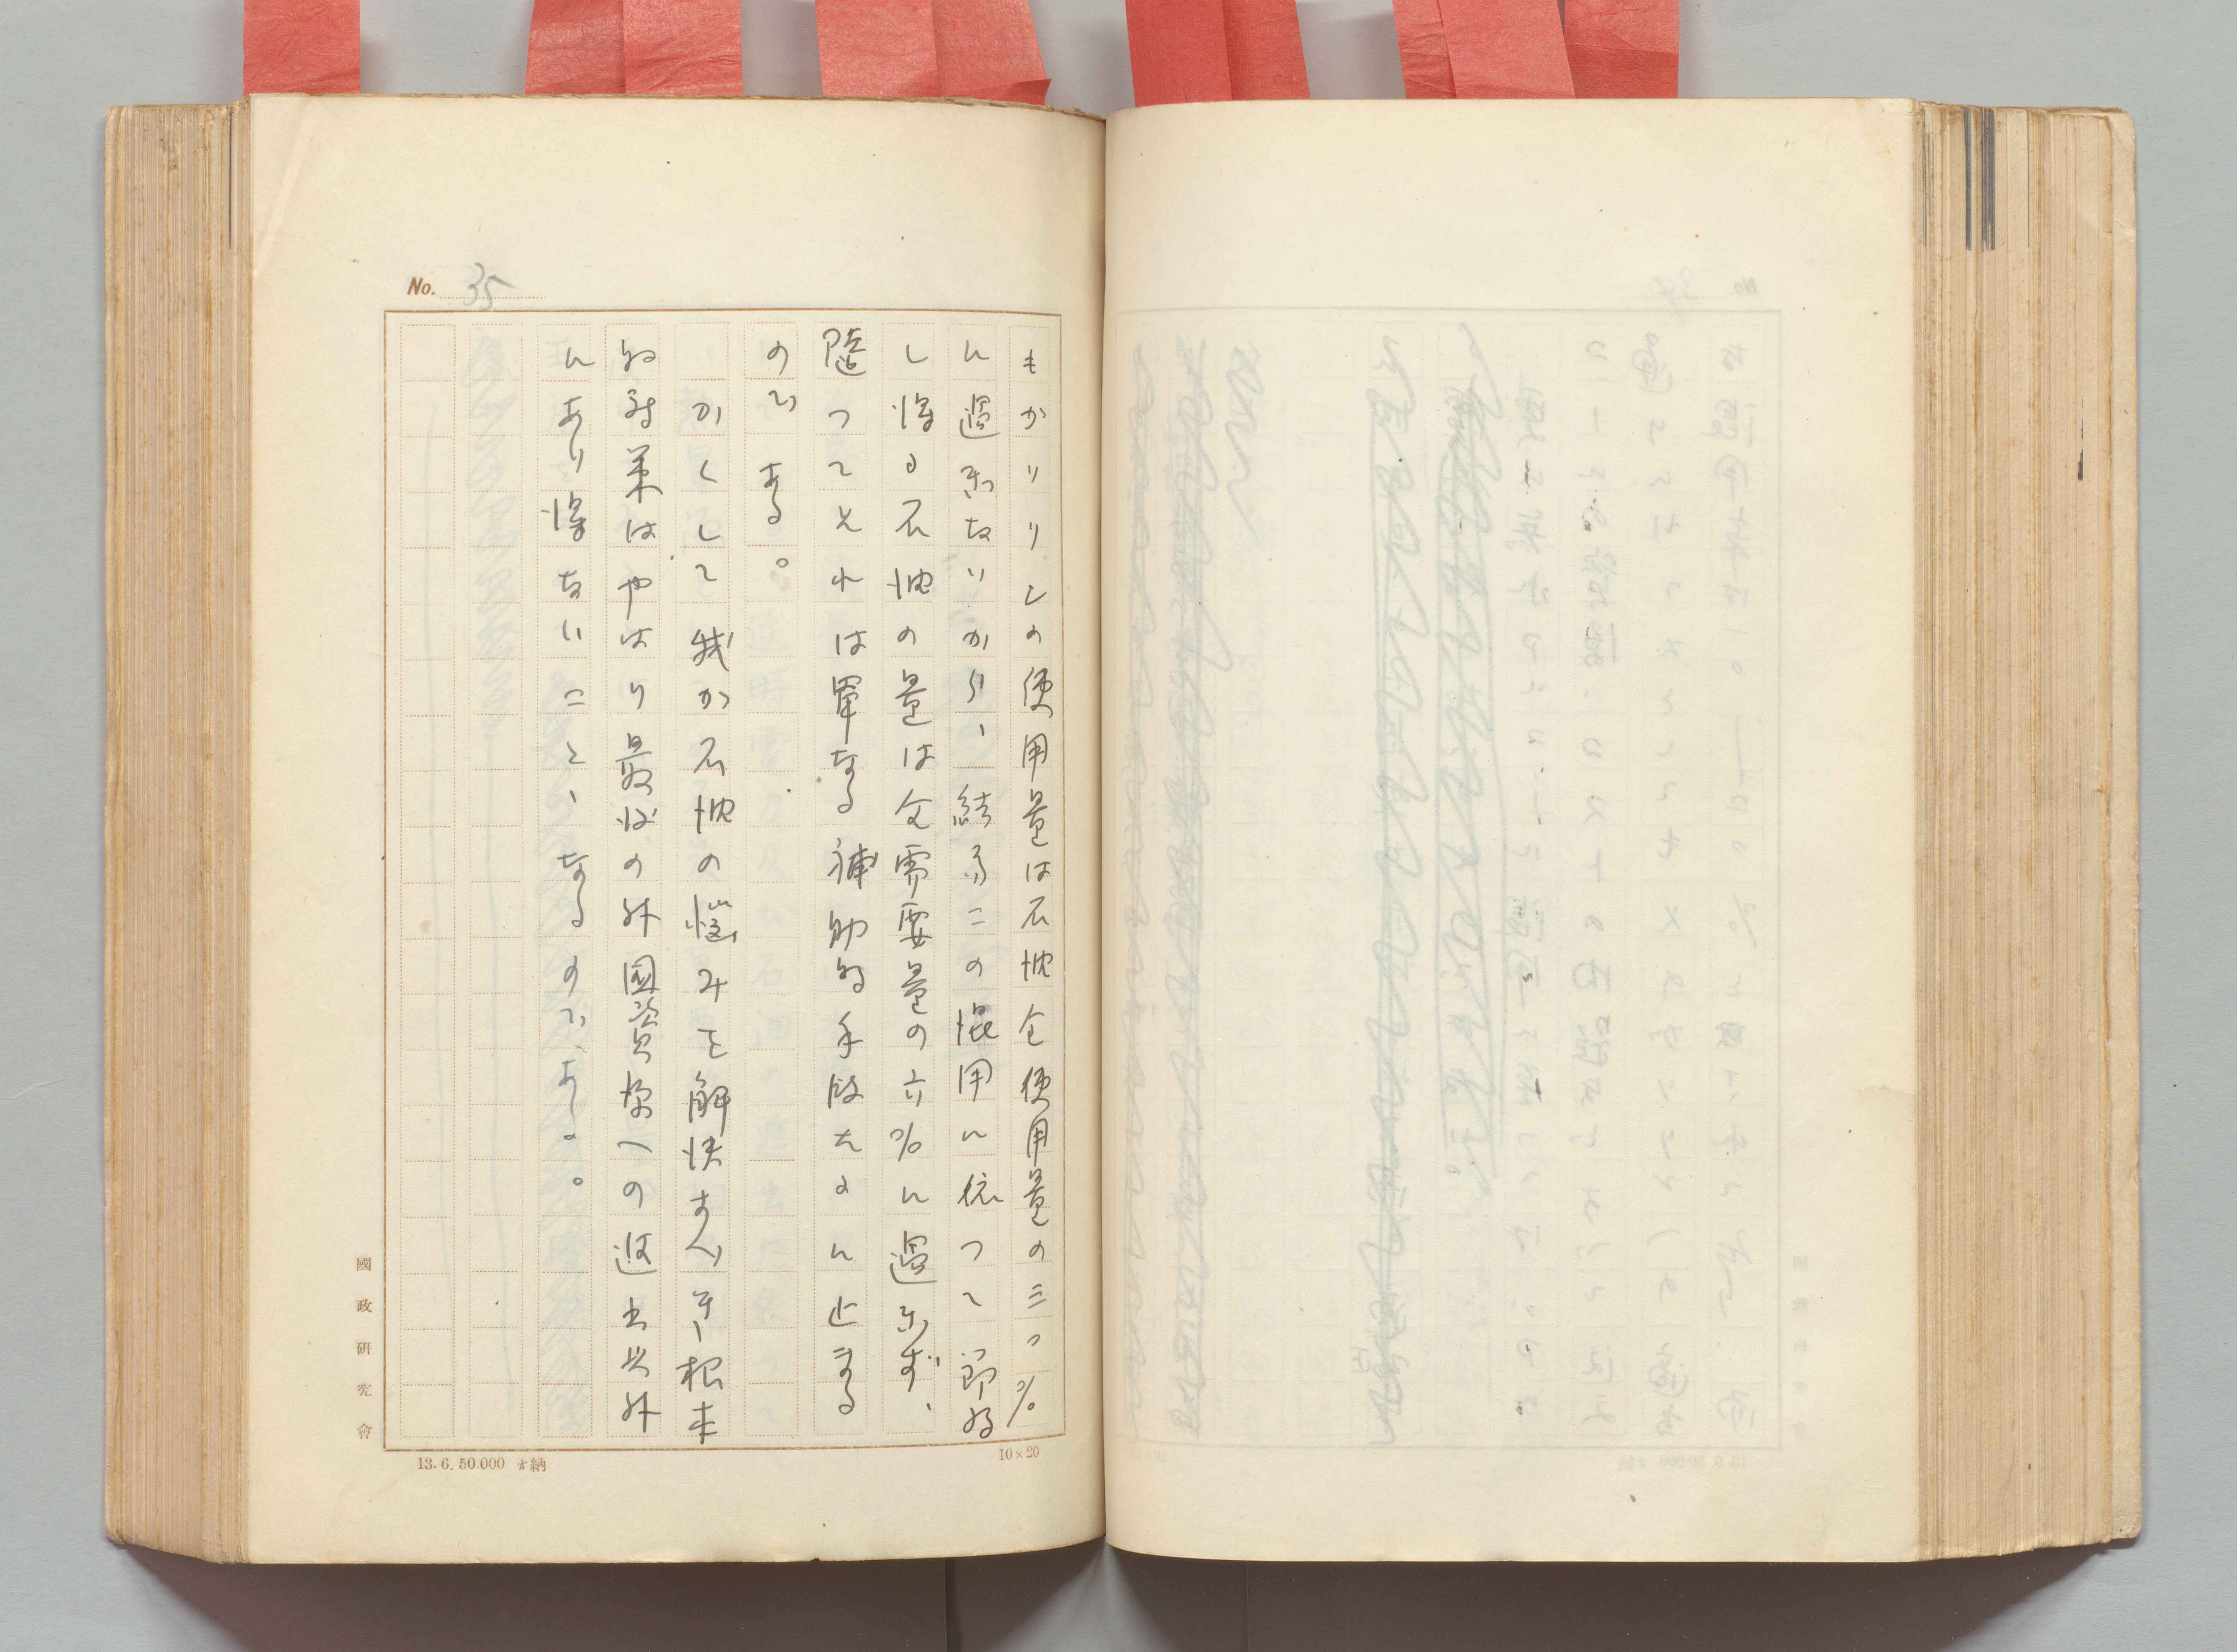 No. 35
もガソリンの使用量は石油全使用量の三〇%
に過ぎないから、結局この混用に依つて節約
し得る石油の量は全需要量の六%に過ぎず、
随つてそれは単なる補助的手段たるに止まる
のである。
かくして我が石油の悩みを解決すべき根本
的対策はやはり最近の外國資源への進出以外
にあり得ないことゝなるのである。
國政研究會
13.6.50.000 納
10×20